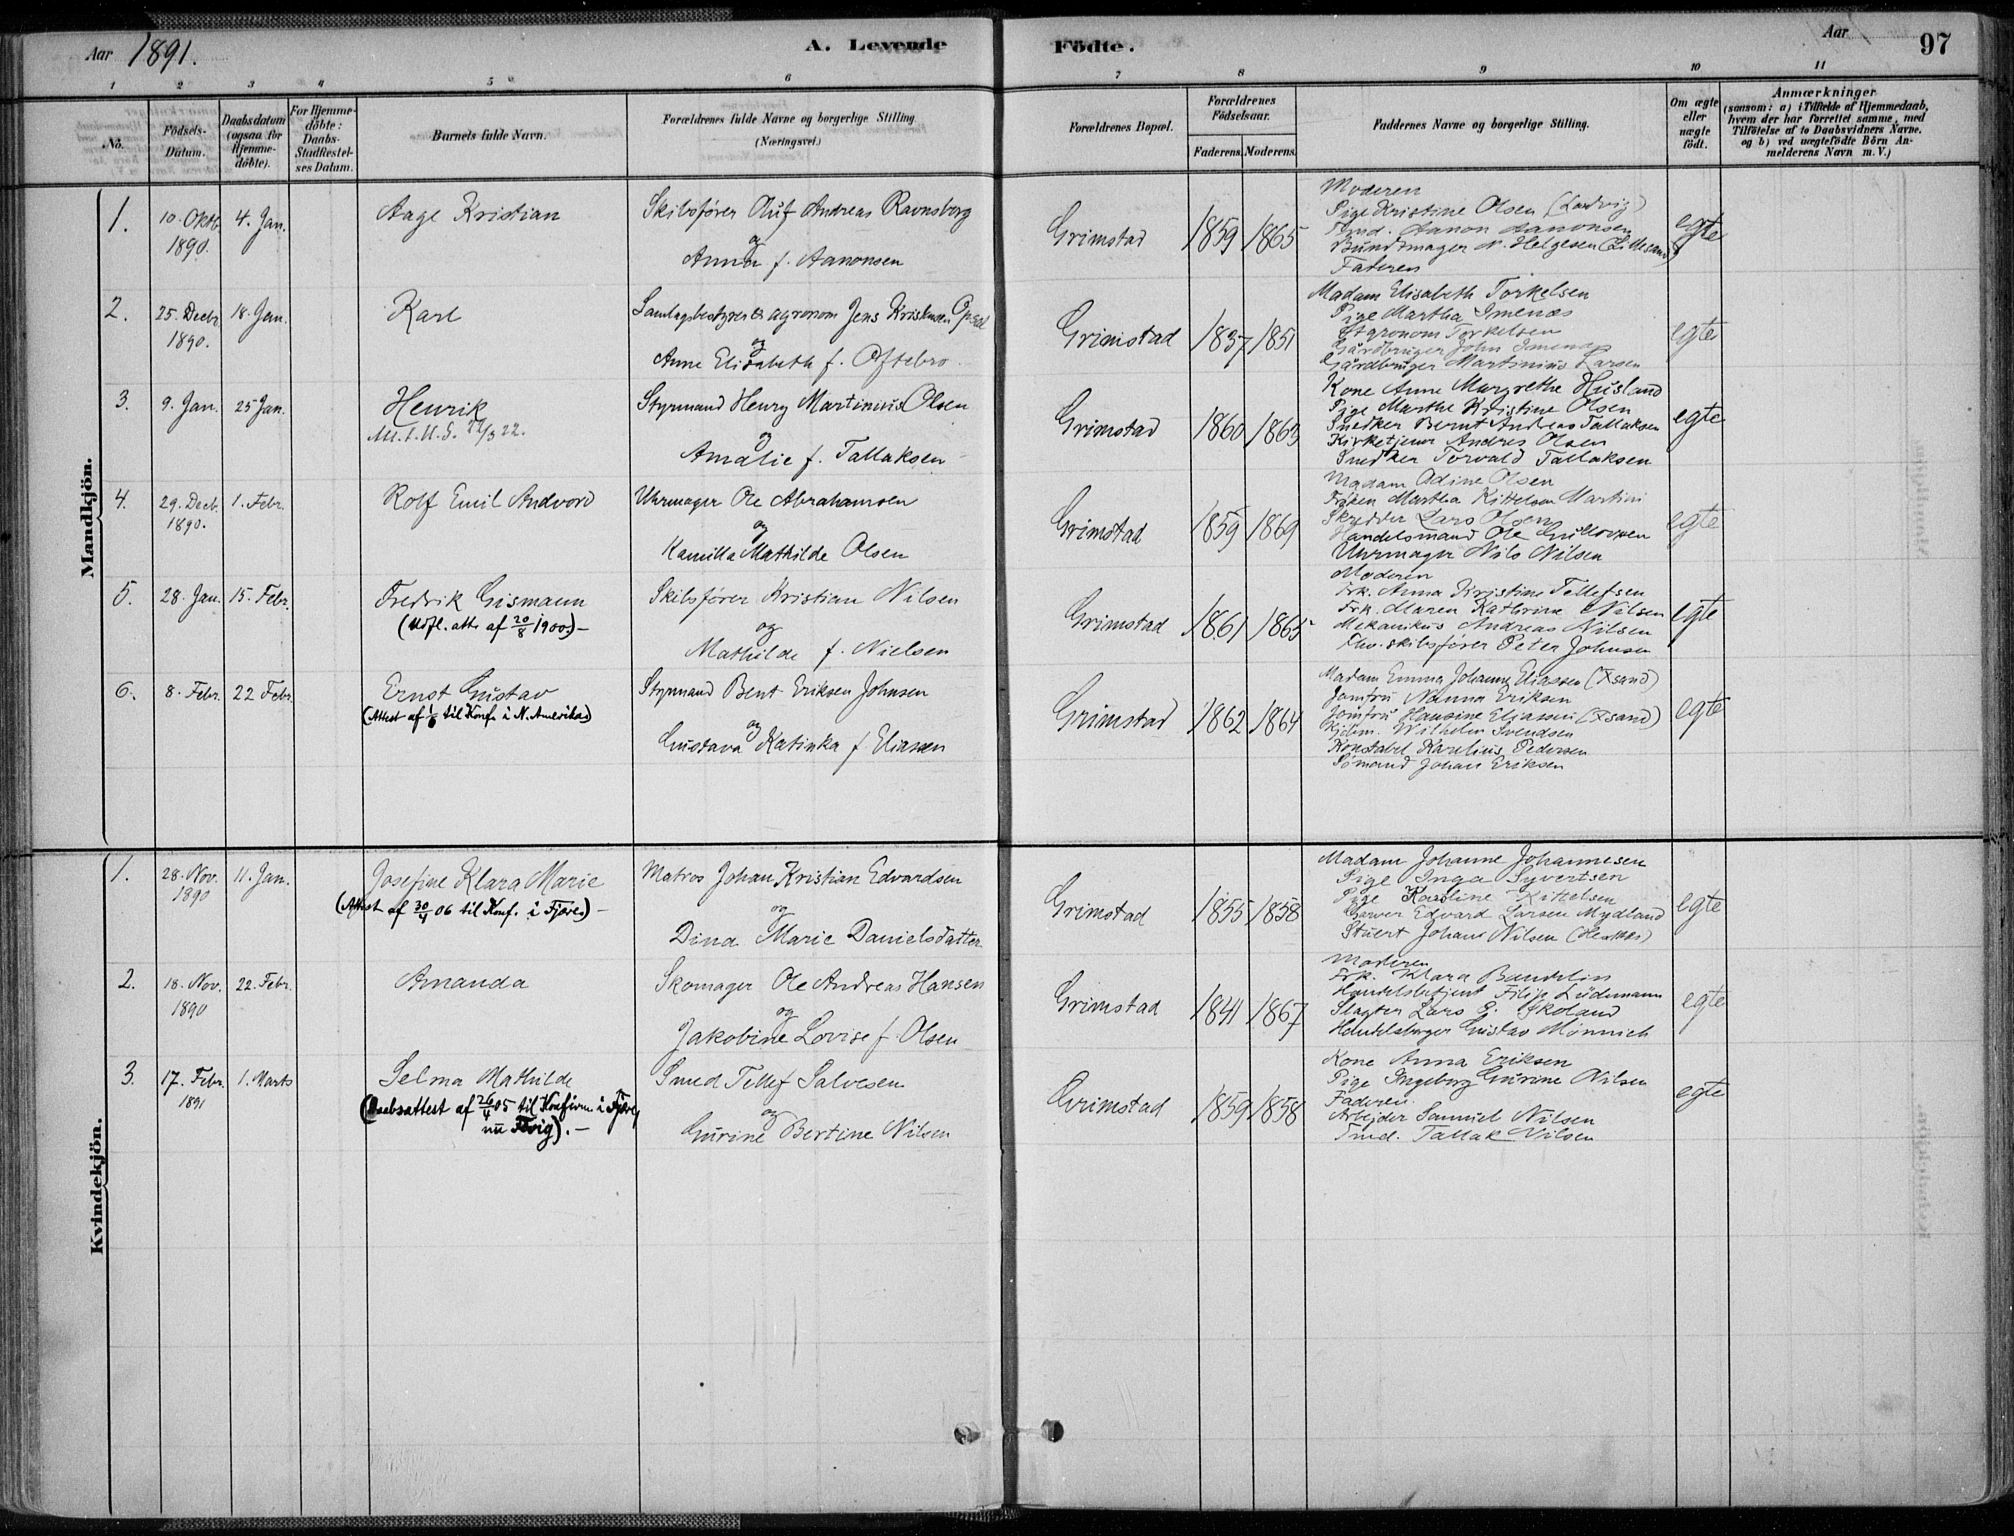 Aar 1891.
A. Levende
Födte.
Aar
97
1 2 3 4 5 6 7 8 9 10 11
No.
Födsels-
Datum.
Daabsdatum
(ogsaa for
Hjemme-
döbte).
For Hjemme-
döbte:
Daabs-
Stadfæstel-
ses Datum.
Barnets fulde Navn.
Forældrenes fulde Navne og borgerlige Stilling
(Næringsvei.)
Forældrenes Bopæl.
Forældrenes
Födselsaar.
Faderens. Moderens.
Faddernes Navne og borgerlige Stilling.
Om ægte
eller
uægte
födt.
Anmærkninger
(saasom: a) i Tilfælde af Hjemmedaab,
hvem der har forrettet samme, med
Tilföielse af to Daabsvidners Navne.
og b) ved uægtefödte Börn An-
melderens Navn m. V.)
Mandkjön.
1. 10. Oktb. 1890. 4. Jan.
Aage Kristian
Skibsfører Oluf Andreas Ravnsborg
og
Anna f. Aanonsen
Grimstad 1859 1865
Moderen
Pige Kristine Olsen (Ladvig)
Tmd. Aanon Aanonsen
Bundtmager N. Helgesen (Lillesand)
Faderen
egte
2. 25. Decbr. 1890. 18. Jan.
Karl
Samlagsbestyrer & agronom Jens Kristensen Opsal
og
Anne Elisabeth f. Oftebro
Grimstad 1837 1851
Madam Elisabeth Torkelsen
Pige Martha Imenæs
Agronom Torkelsen
Gårdbruger John Imenæs
Gårdbruger Martinius Larsen
egte
3. 9. Jan. 25 Jan.
Henrik
Styrmand Henry Martinius Olsen
og
Amalie f. Tallaksen
Grimstad 1860 1865
Kone Anne Margrethe Husland
Pige Marthe Kristine Olsen
Snedker Bernt Andreas Tallaksen
Kirketjener Andres Olsen
Snedker Torvald Tallaksen
egte
4. 29. Decb. 1890. 1. Febr.
Rolf Emil Andvord
Uhrmager Ole Abrahamsen
og
Kamilla Mathilde Olsen
Grimstad 1859 1869
Madam Adine Olsen
Frøken Martha Kittelsen Martini
Skrædder Lars Olsen
Handelsmand Ole Gullovsen
Uhrmager Nils Nilsen
egte
5. 28. Jan. 15. Febr.
Fredrik Gismann
(Udfl. att. af 20/8 1900.) –
Skibsfører Kristian Nilsen
og
Mathilde f. Nielsen
Grimstad 1861 1865
Moderen
Frk. Anna Kristine Tellefsen
Frk. Maren Kathrine Nilsen
Mekanikus Andreas Nilsen
skibsfører Peter Johnsen
egte
6. 8. Febr. 22 Febr.
Ernst Gustav
(Attest af til Konf. i N. Amerika)
Styrmand Bent Eriksen Johnsen
og
Gustava Katinka f Eliassen
Grimstad 1862 1864
Madam Emma Johanne Eliassen (Xsand)
Jomfru Nanna Eriksen
Jomfru Hansine Eliassen (Xsand)
Kjøbm. Wilhelm Svendsen
Konstabel Karelius Pedersen
Sømand Johan Eriksen
egte
Kvindekjön.
1. 28. Nov. 1890 11. Jan.
Josefine Klara Marie
(Attest af 30/4 06 til Konf. i Fjære) –
Matros Johan Kristian Edvardsen
og
Dina Marie Danielsdatter
Grimstad 1855 1858
Madam Johanne Johannesen
Pige Inga Syvertsen
Pige Karoline Kittelsen
Garver Edvard Larsen Mydland
Stuert Johans Nilsen (Hesnes)
egte
2. 18. Nov. 1890 22. Febr.
Amanda
Skomager Ole Andreas Hansen
og
Jakobine Lovise f. Olsen
Grimstad 1841 1867
Moderen
Frk. Klara Bandelin
Handelsbetjent Filip Lüdemann
Slagter Lars E. Skoland
Handelsborger Gustav Mønnich
egte
3. 17. Febr. 1891 1. Marts
Selma Mathilde
(Daabsattest af 26/4 05 til Konfirm. i Fjære
nu Fevig). –
Smed Tellef Salvesen
og
Gurine Bertine Nilsen
Grimstad 1859 1858
Kone Anna Eriksen
Pige Ingeborg Gurine Nilsen
Faderen
Arbejder Samuel Nilsen
Tmd. Tallak Nilsen
egte